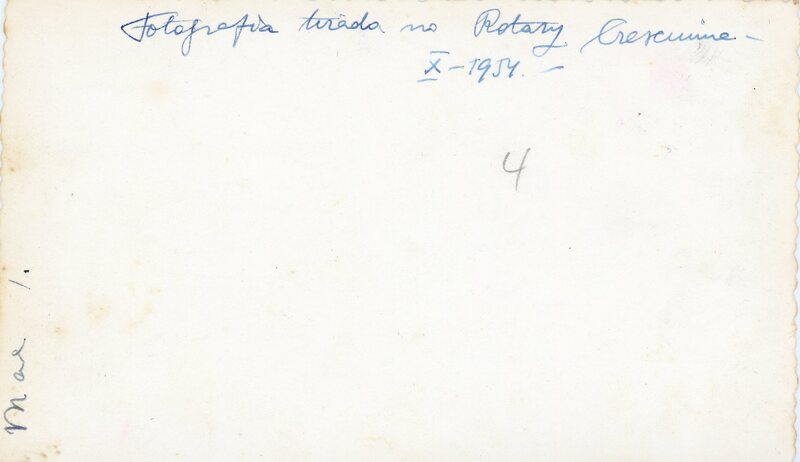 Fotografia tirada no Rotary Cresciuma –
X – 1954. –
4
Mar 1.